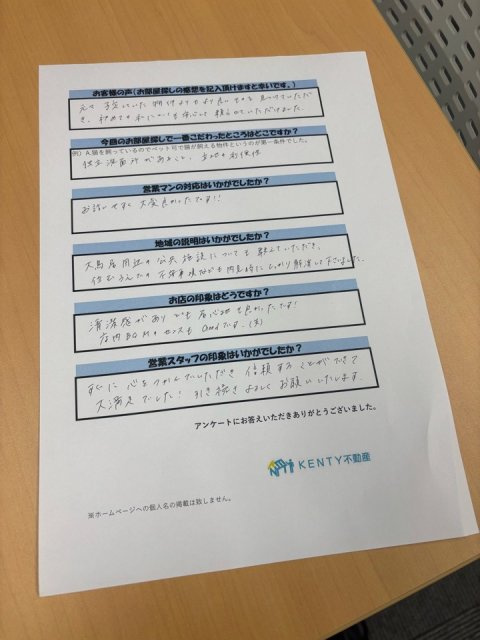 お客様の声(お部屋探しの感想を記入頂けますと幸いです。)
元々予定していた物件よりもより良いものを見つけていただ
き、初めての私にとても安心して頼らせていただけました。
今回のお部屋探しで一番こだわったところはどこですか?
例)A.猫を飼っているのでペット可で猫が飼える物件というのが第一条件でした。
独立洗面所があること、立地の利便性
営業マンの対応はいかがでしたか?
お話しやすく大変良かったです!!
地域の説明はいかがでしたか?
大鳥居周辺の公共施設についても教えていただき、
住むうえでの不安事項なども内見時にしっかり解消して下さいました。
お店の印象はどうですか?
清潔感がありとても居心地も良かったです!
店内BGMのセンスもGoodです。(笑)
営業スタッフの印象はいかがでしたか?
すぐに心をつかんでいただき信頼することができて
大満足でした!引き続きよろしくお願いいたします。
アンケートにお答えいただきありがとうございました。
KENTY不動産
※ホームページへの個人名の掲載は致しません。